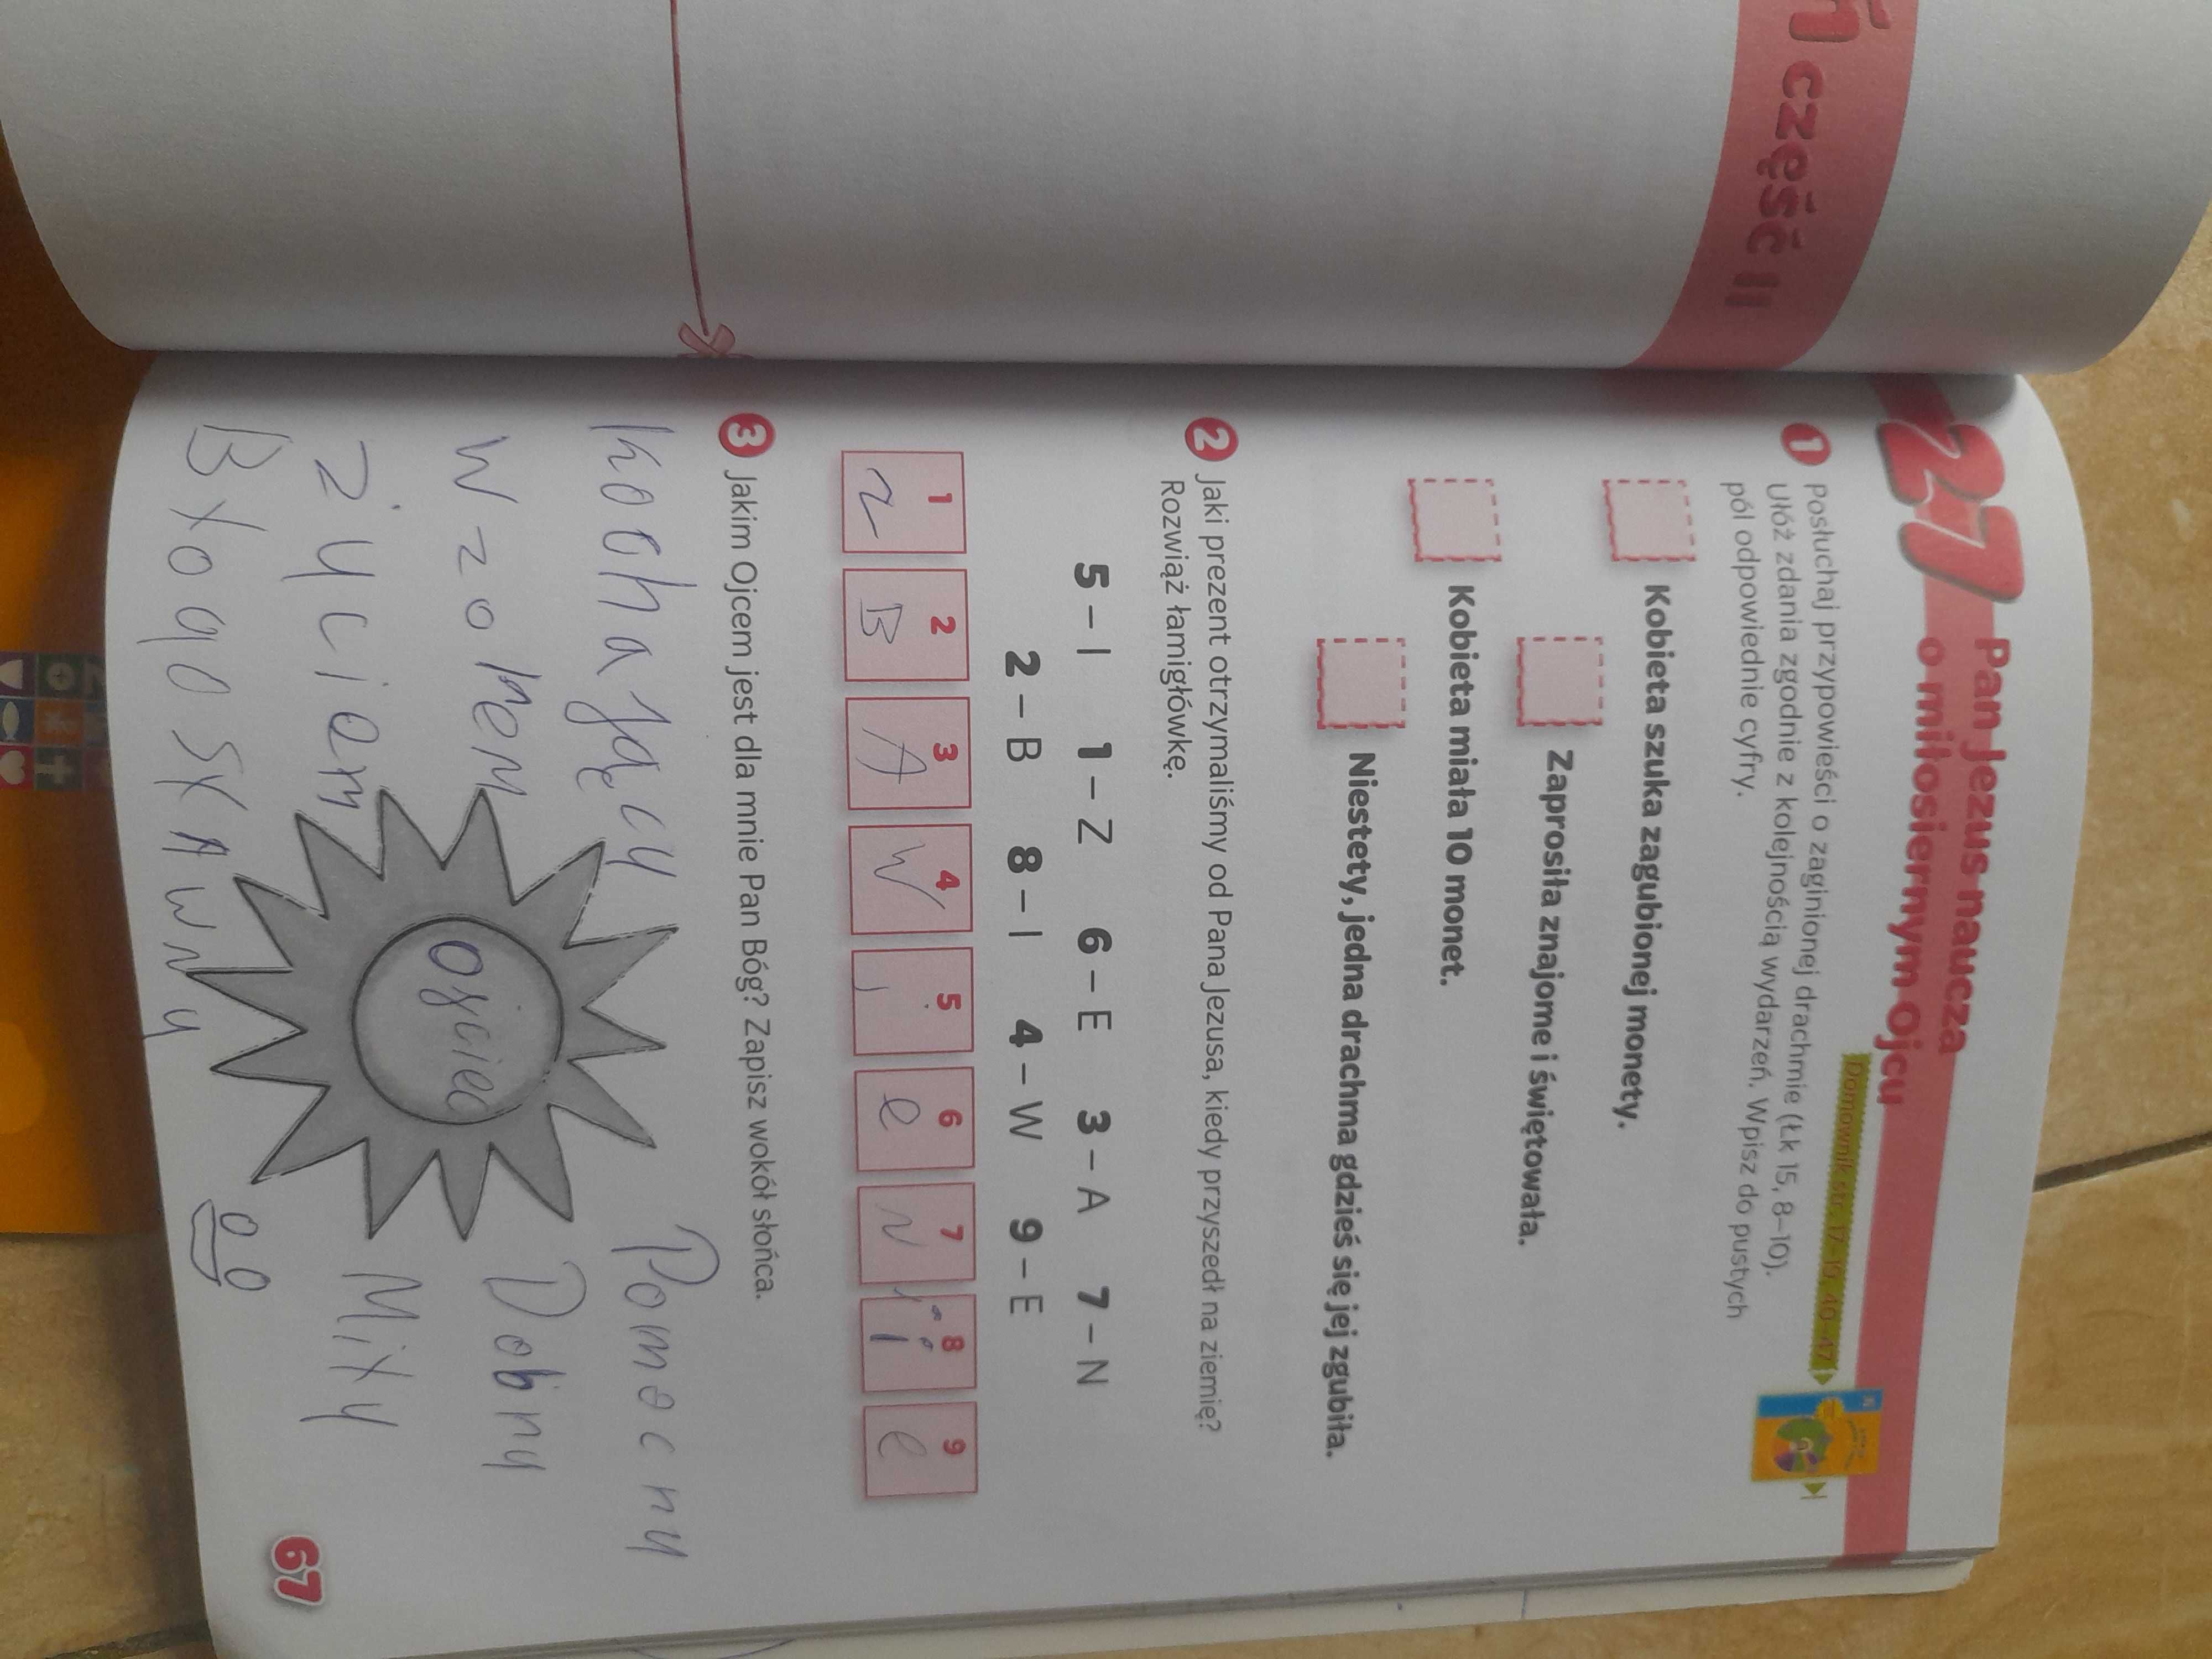 ń część II
27 Pan Jezus naucza
o miłosiernym Ojcu
Domownik str. 17-19, 40-47
1 Posłuchaj przypowieści o zaginionej drachmie (Łk 15, 8–10).
Ułóż zdania zgodnie z kolejnością wydarzeń. Wpisz do pustych
pól odpowiednie cyfry.
Kobieta szuka zagubionej monety.
Zaprosiła znajome i świętowała.
Kobieta miała 10 monet.
Niestety, jedna drachma gdzieś się jej zgubiła.
2 Jaki prezent otrzymaliśmy od Pana Jezusa, kiedy przyszedł na ziemię?
Rozwiąż łamigłówkę.
5 – I 1 – Z 6 – E 3 – A 7 – N
2 – B 8 – I 4 – W 9 – E
1 2 3 4 5 6 7 8 9
Z B A W i e N i e
3 Jakim Ojcem jest dla mnie Pan Bóg? Zapisz wokół słońca.
kochający Pomocny
wzorem Dobry
Ojciec
życiem Miły
Błogosławny
67